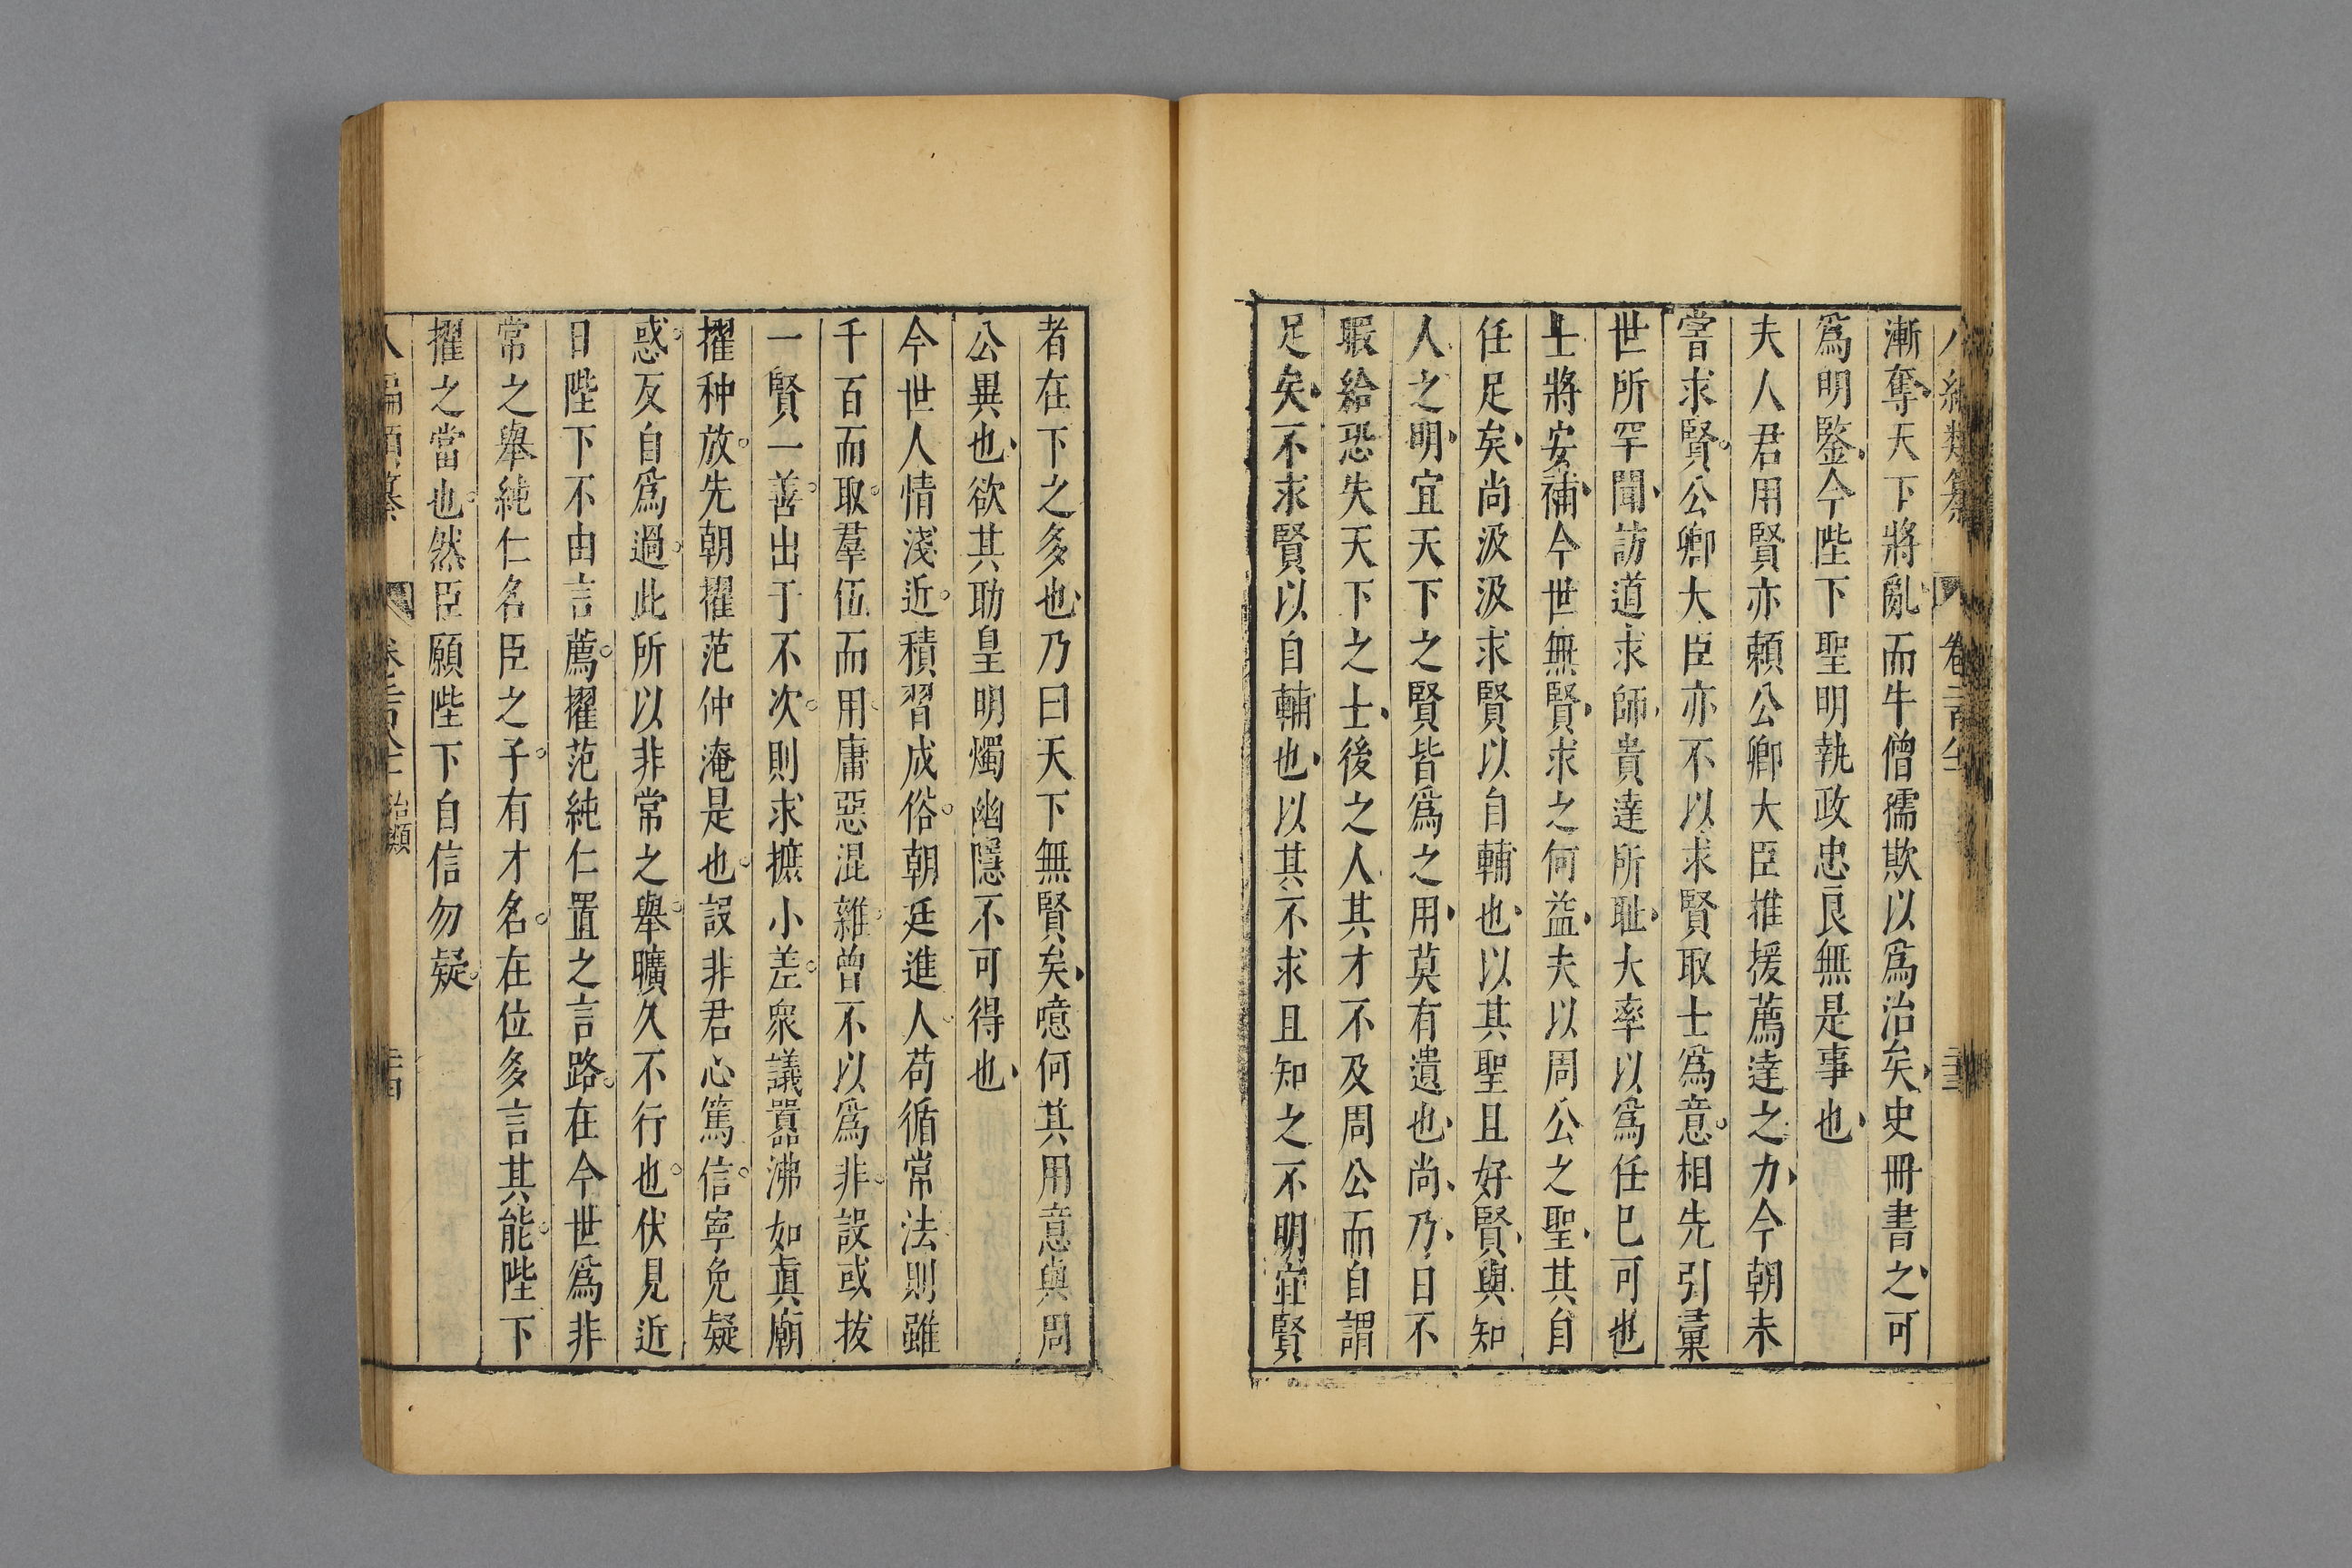 八編類纂 卷二百八十
漸奪天下將亂而牛僧孺欺以爲治矣史冊書之可
爲明鑒今陛下聖明執政忠良無是事也
夫人君用賢亦賴公卿大臣推援薦達之力今朝未
嘗求賢公卿大臣亦不以求賢取士爲意相先引彙
世所罕聞訪道求師貴達所耻大率以爲任巳可也
士將安補今世無賢求之何益夫以周公之聖其自
任足矣尚汲汲求賢以自輔也以其聖且好賢與知
人之明宜天下之賢皆爲之用莫有遺也尚乃日不
暇給恐失天下之士後之人其才不及周公而自謂
足矣不求賢以自輔也以其不求且知之不明宜賢
者在下之多也乃曰天下無賢矣噫何其用意與周
公異也欲其助皇明燭幽隱不可得也
今世人情淺近積習成俗朝廷進人苟循常法則雖
千百而取羣伍而用庸惡混雜曾不以爲非設或拔
一賢一善出于不次則求摭小差衆議囂沸如真廟
擢种放先朝擢范仲淹是也設非君心篤信寧免疑
惑反自爲過此所以非常之舉曠久不行也伏見近
日陛下不由言薦擢范純仁置之言路在今世爲非
常之舉純仁名臣之子有才名在位多言其能陛下
擢之當也然臣願陛下自信勿疑
八編類纂 治類